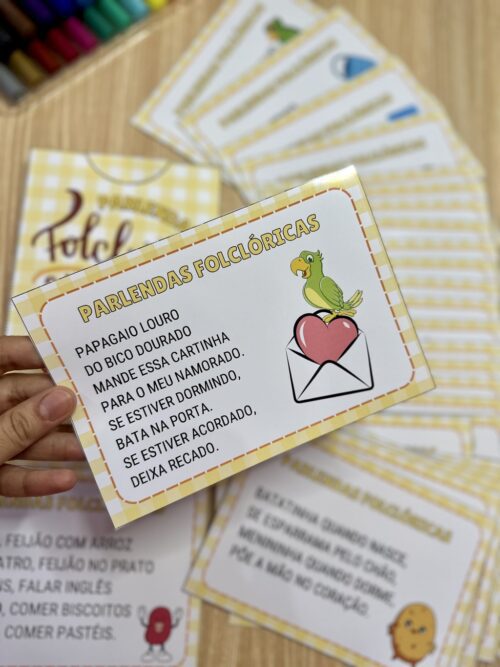 PARLENDAS
Folcl
PARLENDAS FOLCLÓRICAS
PAPAGAIO LOURO
DO BICO DOURADO
MANDE ESSA CARTINHA
PARA O MEU NAMORADO.
SE ESTIVER DORMINDO,
BATA NA PORTA.
SE ESTIVER ACORDADO,
DEIXA RECADO.
, FEIJÃO COM ARROZ
ATRO, FEIJÃO NO PRATO
NS, FALAR INGLÊS
O, COMER BISCOITOS
COMER PASTÉIS.
PARLENDAS FOLCLÓRICAS
BATATINHA QUANDO NASCE,
SE ESPARRAMA PELO CHÃO,
MENININHA QUANDO DORME,
PÕE A MÃO NO CORAÇÃO.